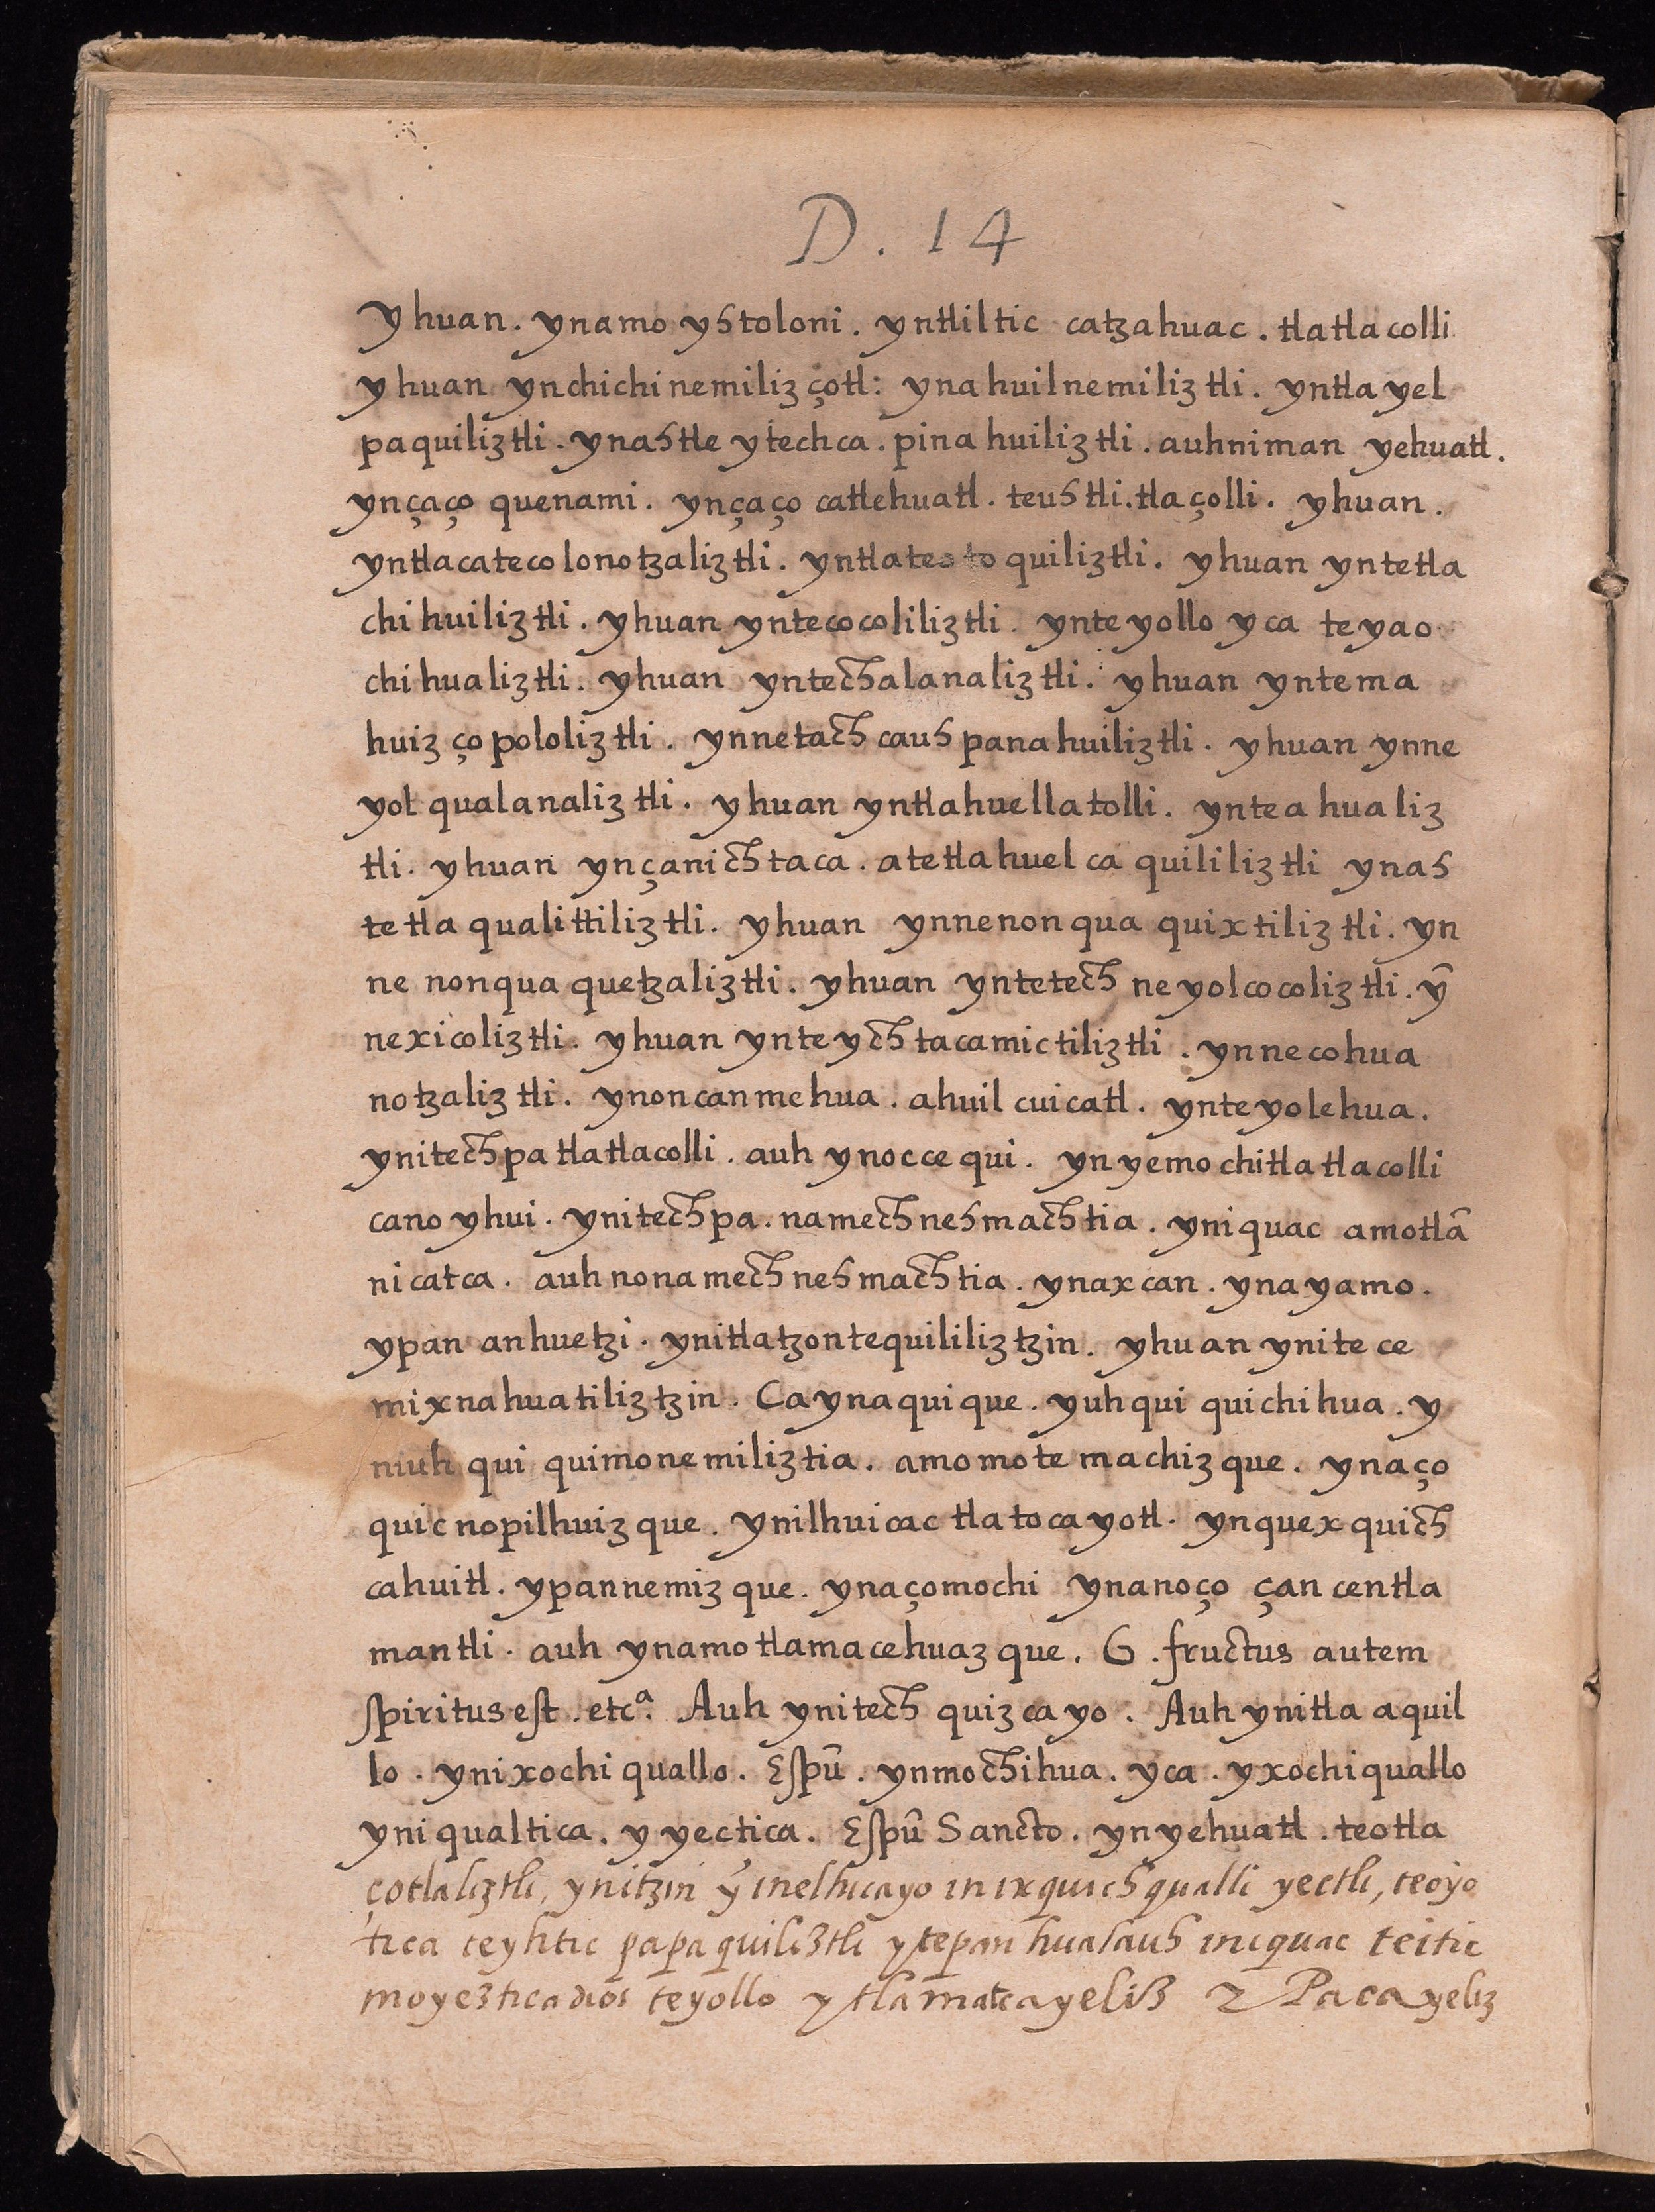 D. 14
yhuan. ynamo yhtoloni. yntliltic catzahuac. tlatlacolli
yhuan ynchichinemilizçotl: ynahuilnemiliztli. yntlayel
paquiliztli. ynahtle ytechca. pinahuiliztli. auhniman yehuatl.
ynçaço quenami. ynçaço catlehuatl. teuhtli. tlaçolli. yhuan.
yntlacatecolonotzaliztli. yntlateotoquiliztli. yhuan yntetla
chihuiliztli. yhuan yntecocoliliztli. ynteyollo yca teyao
chihualiztli. yhuan yntechalanaliztli. yhuan yntema
huizçopololiztli. ynnetachcauhpanahuiliztli. yhuan ynne
yolqualanaliztli. yhuan yntlahuellatolli. ynteahualiz
tli. yhuan ynçanichtaca. atetlahuelcaquililiztli ynah
tetlaqualittiliztli. yhuan ynnenonquaquixtiliztli. yn
nenonquaquetzaliztli. yhuan yntetech neyolcocoliztli. yn̄
nexicoliztli. yhuan ynteychtacamictiliztli. ynnecohua
notzaliztli. ynoncanmehua. ahuilcuicatl. ynteyolehua.
ynitechpa tlatlacolli. auh ynoccequi. ynyemochitlatlacolli
canoyhui. ynitechpa. namechnehmachtia. yniquac amotlā
nicatca. auh nonamechnehmachtia. ynaxcan. ynayamo.
ypan anhuetzi. ynitlatzontequililiztzin. yhuan ynitece
mixnahuatiliztzin. Caynaquique. yuhqui quichihua. y
niuhqui quimonemiliztia. amomotemachizque. ynaço
quicnopilhuizque. ynilhuicac tlatocayotl. ynquexquich
cahuitl. ypannemizque. ynaçomochi ynanoço çan centla
mantli. auh ynamotlamacehuazque. G. fructus autem
spiritus est. etcª. Auh ynitech quizcayo. Auh ynitlaaquil
lo. ynixochiquallo. Espū. ynmochihua. yca. yxochiquallo
yniqualtica. yyectica. Espū Sancto. ynyehuatl. teotla
çotlaliztli, ynitzin ỹ inelhuayo in ixquich qualli yectli, teoyo
tica teyhtic papaquiliztli ytepan hualauh iniquac teitic
moyeztica dios teyollo ytlamatcayeliz 2 Pacayeliz